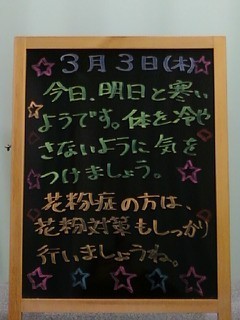 3月3日(木)
今日、明日と寒い
ようです。体を冷や
さないように気を
つけましょう。
花粉症の方は、
花粉対策もしっかり
行いましょうね。